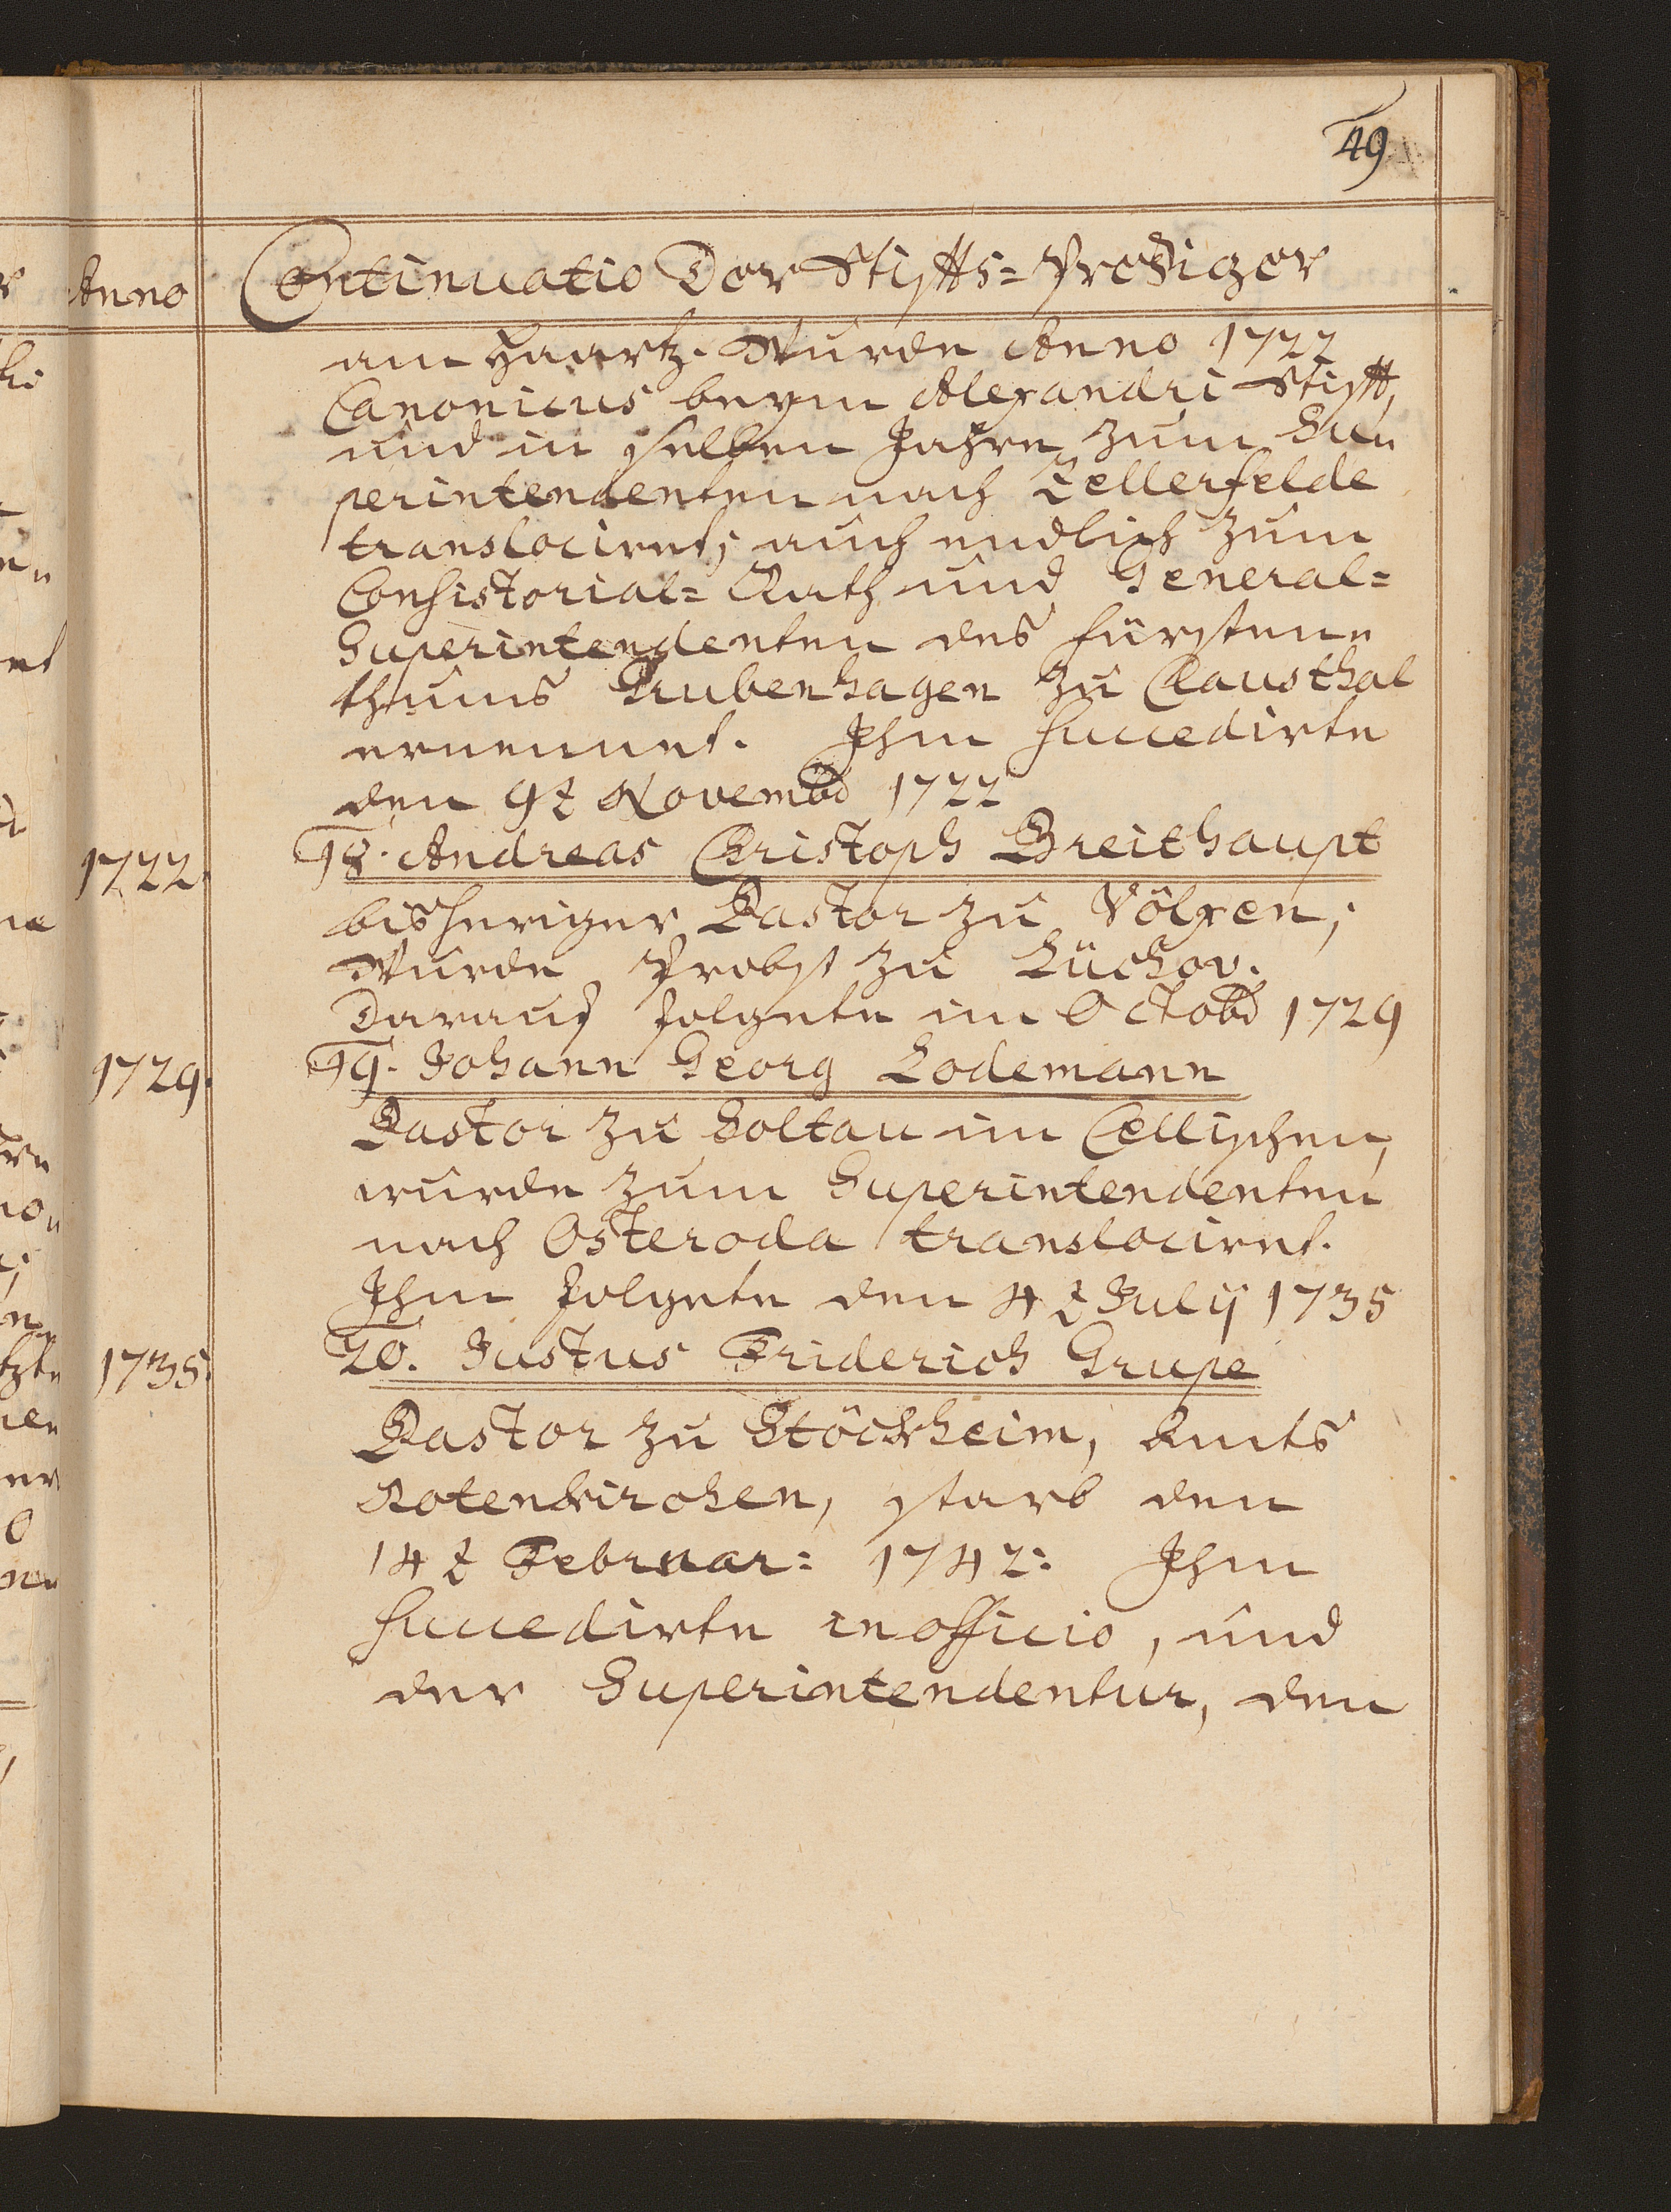 49
Anno Continuatio Der Stiffts=Prediger
am Haartz. Wurde Anno 1722
Canonicus beym Alexandri Stifft,
und in selben Jahre zum Su=
perintendenten nach Cellerfelde
translociret; auch endlich zum
Consistorial=Rath und General=
Superintendenten des Fürsten=
thums Grubenhagen zu Clausthal
ernennet. Ihm succedirte
den 9t Novembr 1722
1722. 18. Andreas Christoph Breithaupt
bisheriger Pastor zu Völxen;
Wurde Probst zu Lüchov.
Darauf folgete im Octobr 1729
1729. 19. Johann Georg Lodemann
Pastor zu Soltau im Cellischen,
wurde zum Superintendenten
nach Osteroda translociret.
Ihm folgete den 4t July 1735
1735. 20. Justus Friderich Grupe
Pastor zu Stöckheim, Amts
Rotenkirchen, starb den
14t Februar: 1742: Ihm
succedirte in officio, und
der Superintendentur, den